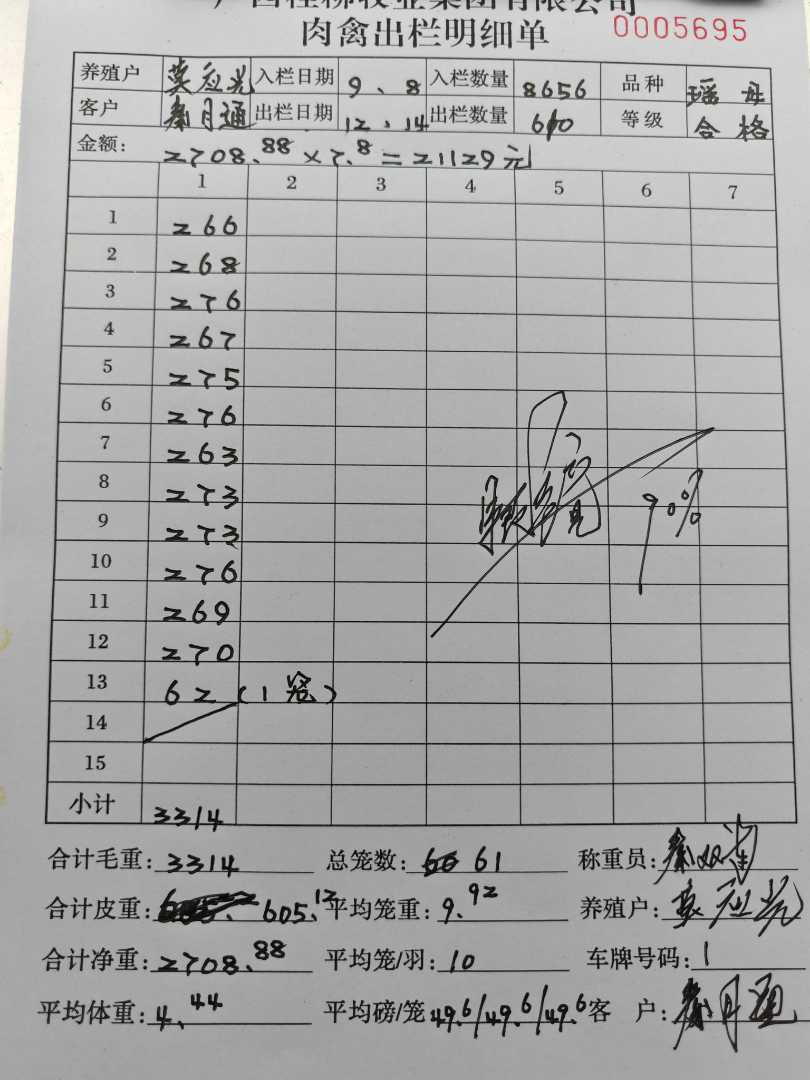 广西桂柳牧业集团有限公司
肉禽出栏明细单 0005695
养殖户 莫应光 入栏日期 9、8 入栏数量 8656 品种 瑶 母
客户 秦月通 出栏日期 12、14 出栏数量 610 等级 合格
金额: 2708.88×7.8=21129元
1 2 3 4 5 6 7
1 266
2 268
3 276
4 267
5 275
6 276
7 263
8 273
9 273
10 276
11 269
12 270
13 62 (1笼)
90%
14
15
小计 3314
合计毛重: 3314 总笼数: 61 称重员:
合计皮重: 605.12 平均笼重: 9.92 养殖户: 莫应光
合计净重: 2708.88 平均笼/羽: 10 车牌号码: 1
平均体重: 4.44 平均磅/笼 49.6/49.6/49.6 客 户: 秦月通